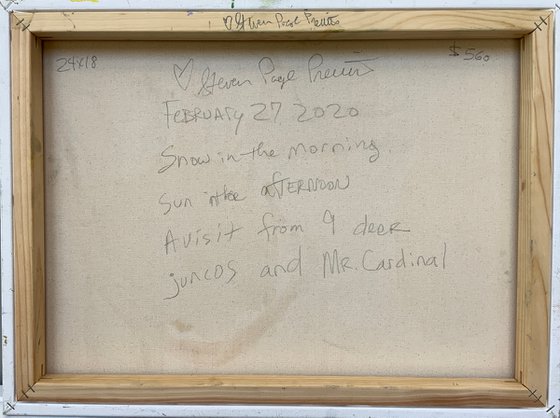 ♡ Steven Page Prewitt
24x18
$560
♡ Steven Page Prewitt
FEBRUARY 27 2020
Snow in the morning
Sun in the AFTERNOON
A visit from 9 deer
juncos and MR. Cardinal